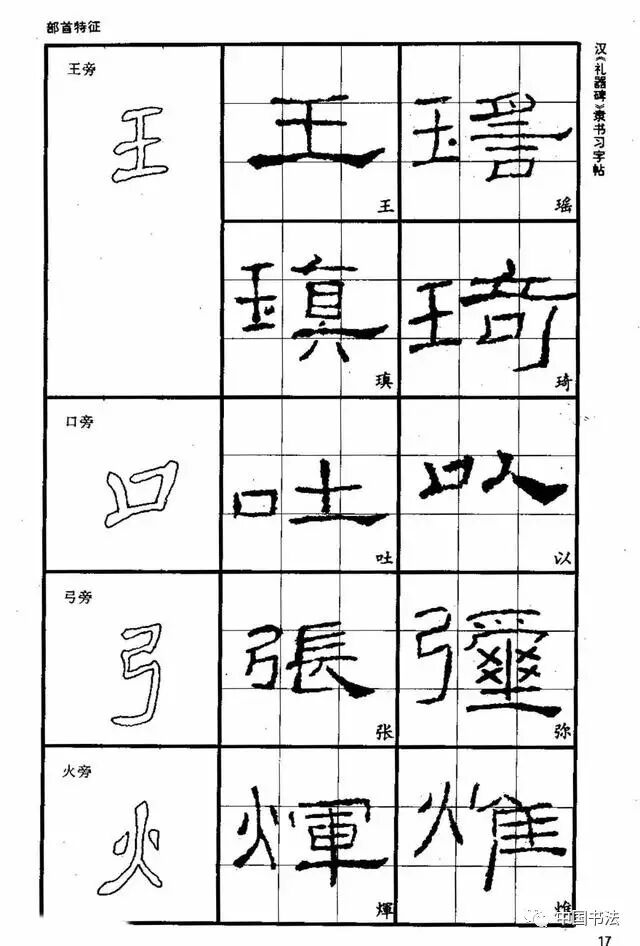 部首特征
汉《礼器碑》隶书习字帖
王旁
王
王
王
瑶
瑶
瑱
瑱
琦
琦
口旁
口
吐
吐
以
以
弓旁
弓
張
张
彌
弥
火旁
火
煇
煇
惟
中国书法
17